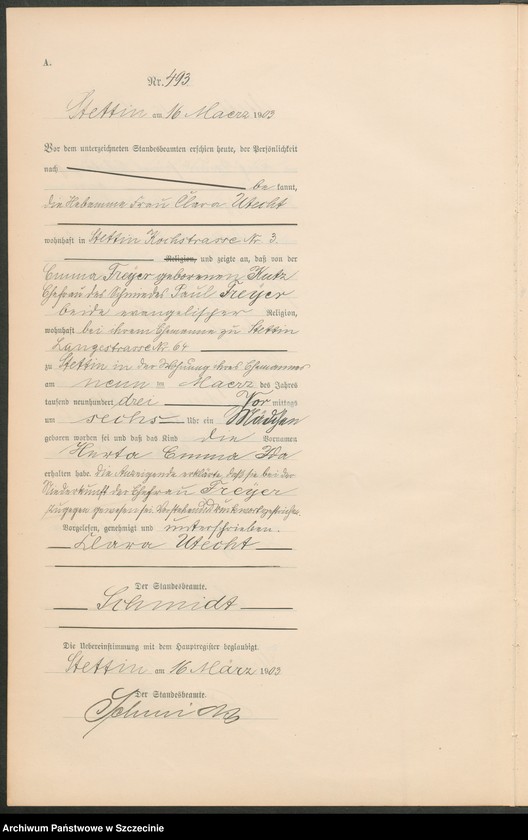 A.
Nr. 493
Stettin am 16 Maerz 1903
Vor dem unterzeichneten Standesbeamten erschien heute, der Persönlichkeit
nach be kannt,
die Hebamme Frau Clara Utecht
wohnhaft in Stettin Kochstrasse Nr 3
Religion, und zeigte an, daß von der
Emma Freyer geborenen Kutz
Ehefrau des Schmiedes Paul Freyer
beide evangelischer Religion,
wohnhaft bei ihrem Ehemanne zu Stettin
Langestrasse Nr 64
zu Stettin in der Wohnung ihres Ehemannes
am neun ten Maerz des Jahres
tausend neunhundert drei Vor mittags
um sechs Uhr ein Mädchen
geboren worden sei und daß das Kind die Vornamen
Herta Emma Ida
erhalten habe. Die Anzeigende erklärte, daß sie bei der
Niederkunft der Ehefrau Freyer
zugegen gewesen sei. Vorstehend ein Druckwort gestrichen
Vorgelesen, genehmigt und unterschrieben.
Clara Utecht
Der Standesbeamte.
Schmidt
Die Uebereinstimmung mit dem Hauptregister beglaubigt.
Stettin am 16 März 1903
Der Standesbeamte.
Schmidt
Archiwum Państwowe w Szczecinie